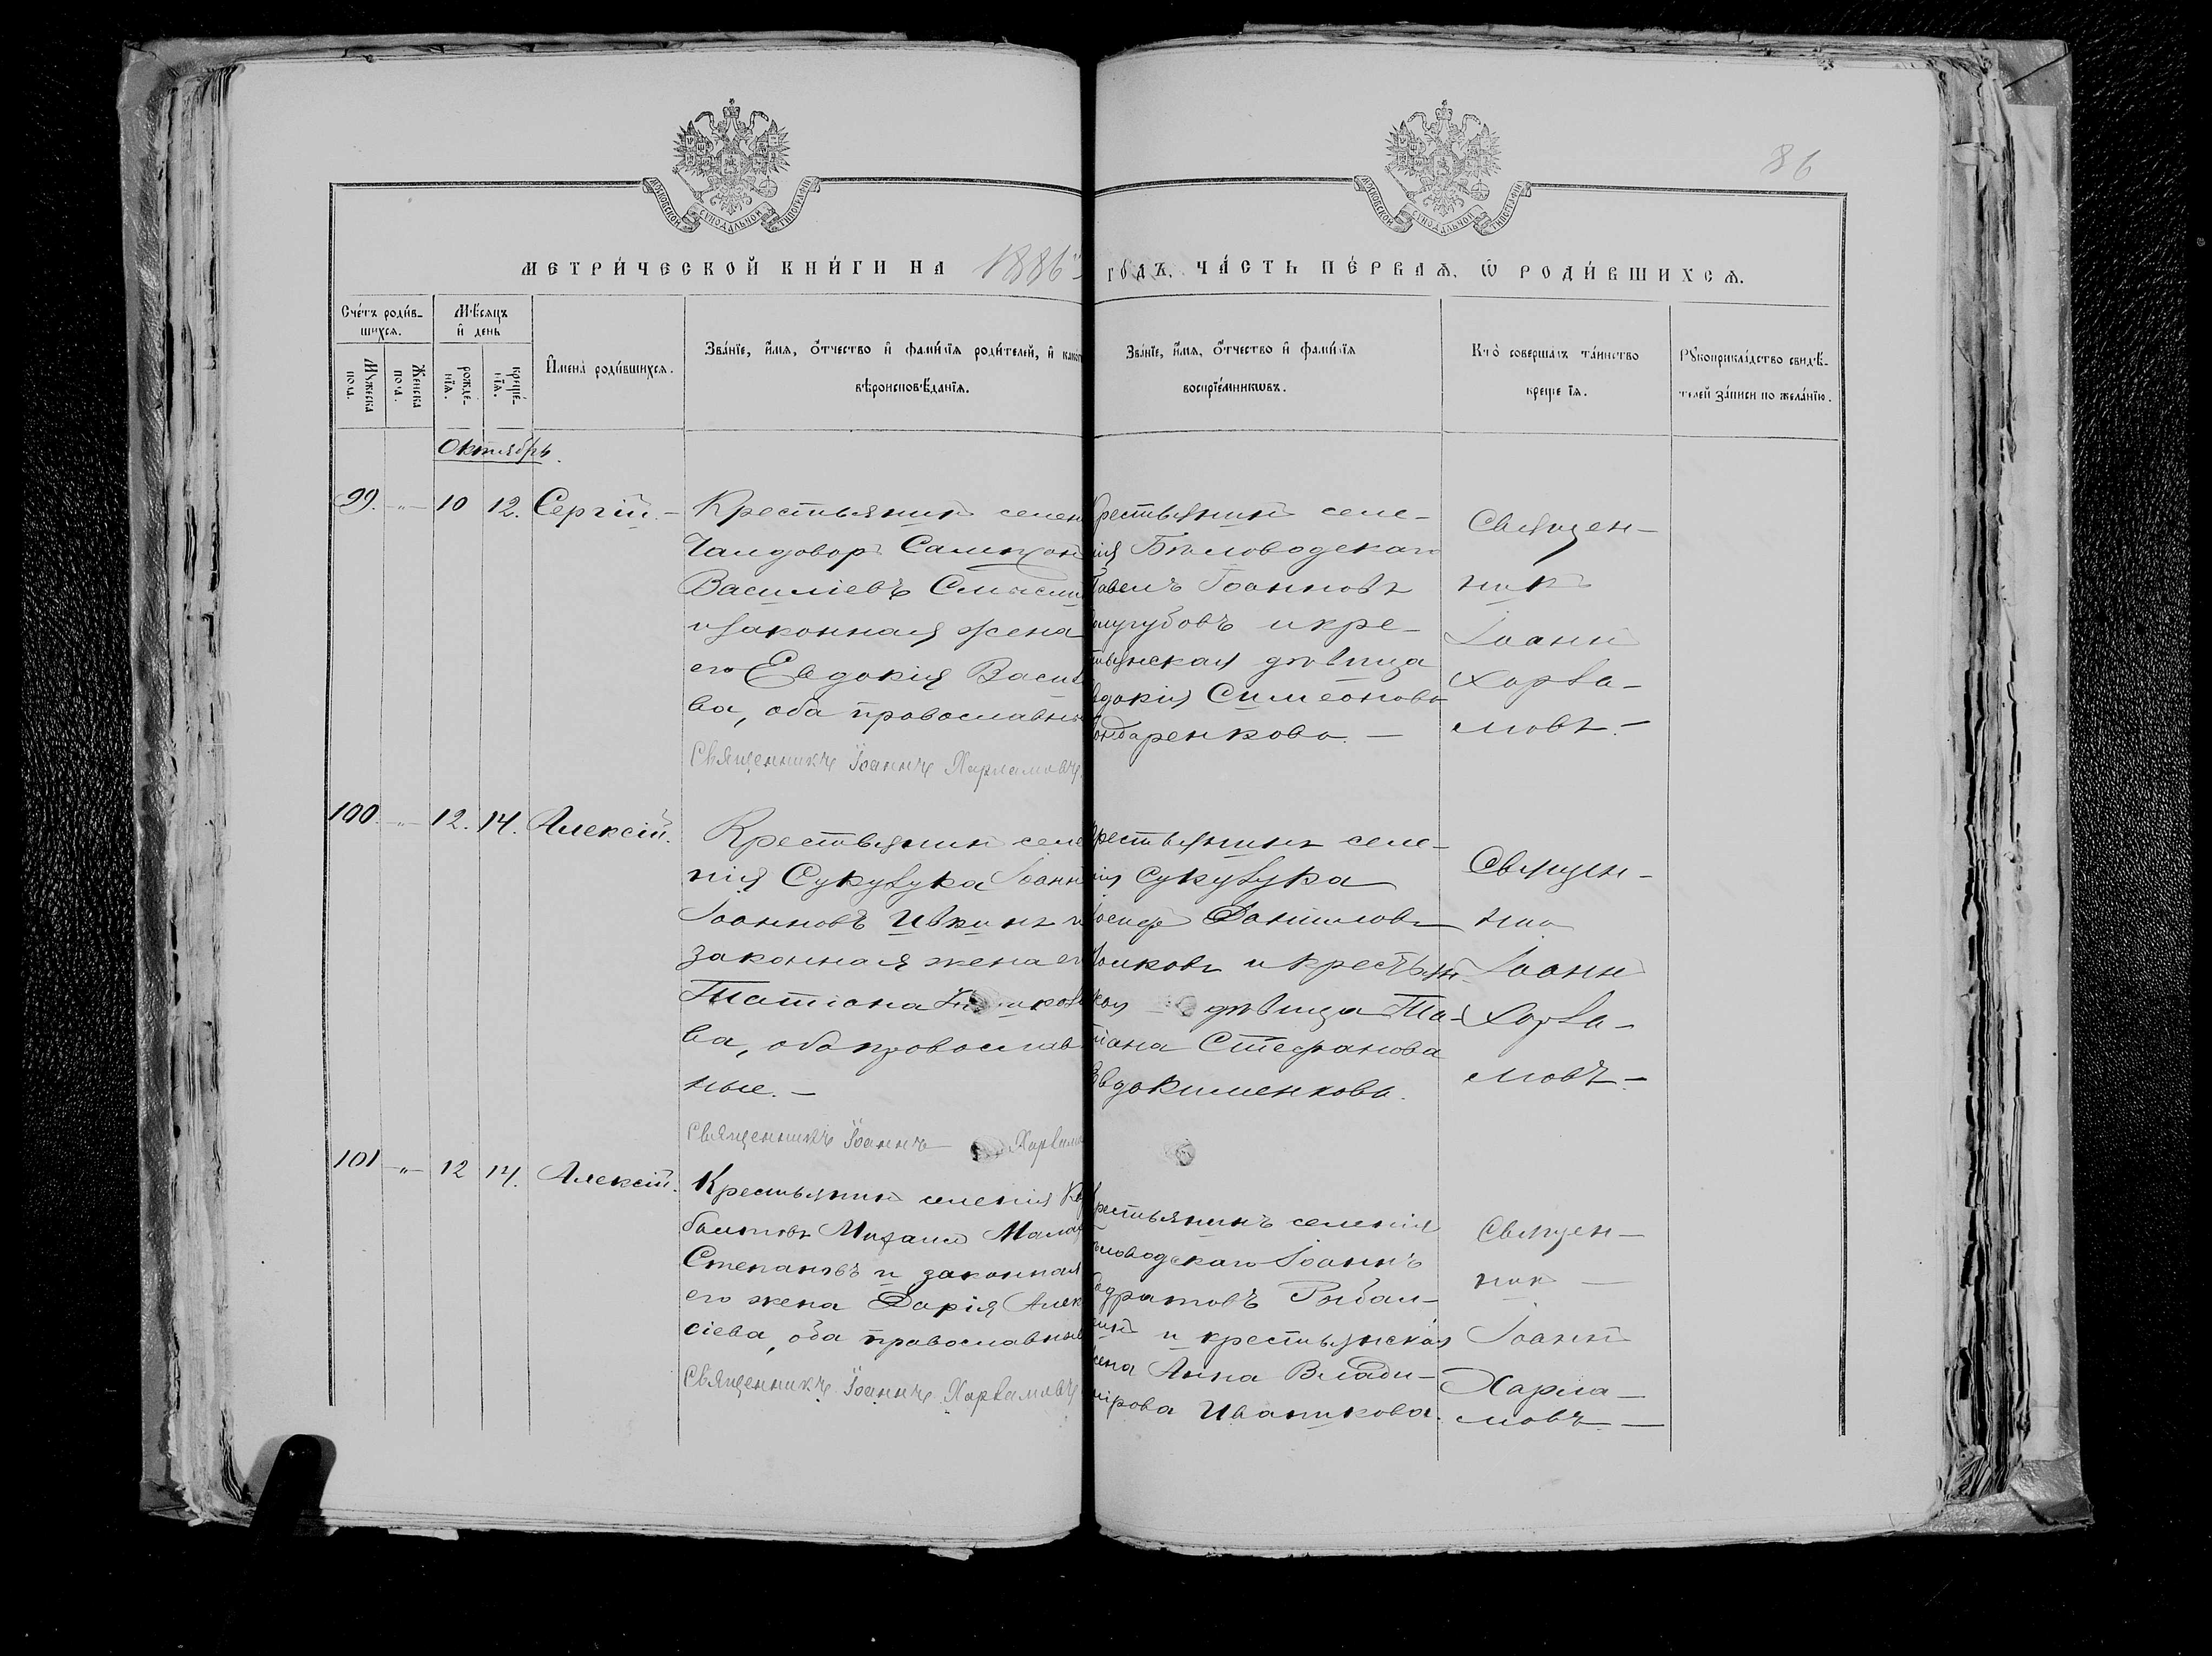 86
МОСКОВСКОЙ СѴНОДАЛЬНОЙ ТИПОГРАФІИ
МОСКОВСКОЙ СѴНОДАЛЬНОЙ ТИПОГРАФІИ
МЕТРИ́ЧЕСКОЙ КНИ́ГИ НА 1886й ГО́ДЪ, ЧА́СТЬ ПЕ́РВАѦ, Ѽ РОДИ́ВШИХСѦ.
Сче́тъ роди́в-
шихсѧ.
Мꙋжеска
пола.
Женска
пола.
Мѣ́сѧцъ
и҆ день
рожде́-
нїѧ.
креще́-
нїѧ.
И҆мена̀ роди́вшихсѧ.
Зва́нїе, и҆́мѧ, ѻ҆́тчество и҆ фами́лїѧ роди́телей, и҆ како
вѣроисповѣ́данїѧ.
Зва́нїе, и҆́мѧ, ѻ҆́тчество и҆ фами́лїѧ
воспрїе́мникѡвъ.
Кто̀ соверша́лъ та́инство
креще їѧ.
Рꙋкоприкла́дство свидѣ́-
телей за́писи по жела́нїю.
Октябрь.
99. -"- 10 12. Сергій. -
Крестьянинъ селен
Чалдоваръ Сампсон
Василіевъ
и законная жена
его Евдокія Васил
ва, оба православны
Священникъ Іоаннъ Харламовъ.
рестьянинъ селе-
нія Бѣловодскаго
Павелъ Іоанновъ
олугубовъ и кре-
стьянская дѣвица
вдокія Симеонова
ондаренкова. -
Священ-
никъ
Іоаннъ
Харла-
мовъ. -
100 -"- 12. 14. Алексій.
Крестьянинъ селе
нія Сукулука Іоанн
Іоанновъ Ивкинъ и
законная жена ег
Татіана
ва, оба православ
ные. -
Священникъ Іоаннъ Харламо
рестьянинъ селе-
нія Сукулука
Іосифъ Даниловъ
и крестьян-
ская дѣвица Та-
тіана Стефанова
Евдокименкова.
Священ-
никъ
Іоаннъ
Харла-
мовъ -
101 -"- 12 14. Алексій.
Крестьянинъ селенія Ка
балтовъ Михаилъ Мала
Степановъ и законная
его жена Дарія Алек
сіева, оба православные
Священникъ Іоаннъ Харламовъ
рестьянинъ селенія
ѣловодскаго Іоаннъ
дратовъ Рыбал-
кинъ и крестьянская
жена Анна Влади-
мірова Иваникова.
Священ-
никъ -
Іоаннъ
Харла-
мовъ. -